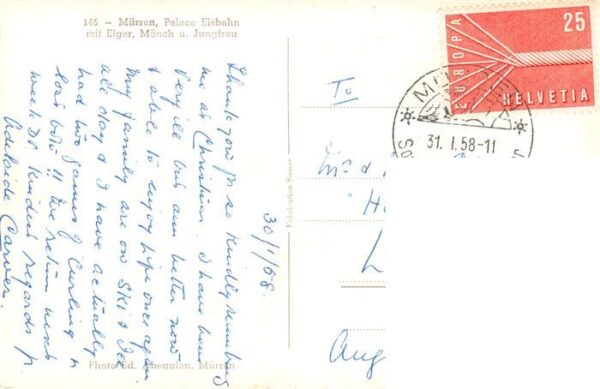 166 - Mürren, Palace Eisbahn
mit Eiger, Mönch u. Jungfrau
Thank you for so kindly remembring
me as Christmas. I have been
Very ill but am better now
& able to enjoy life once again
my family are on Ski & Ice
all day & I have actually
had two games of Curling &
both !! We return next
week So kindest regards fr
Adelaide Carver.
30/1/58.
Photo Ed. Abegglen, Mürren
Fabrication Suisse
To
EUROPA
25
HELVETIA
31. I. 58-11